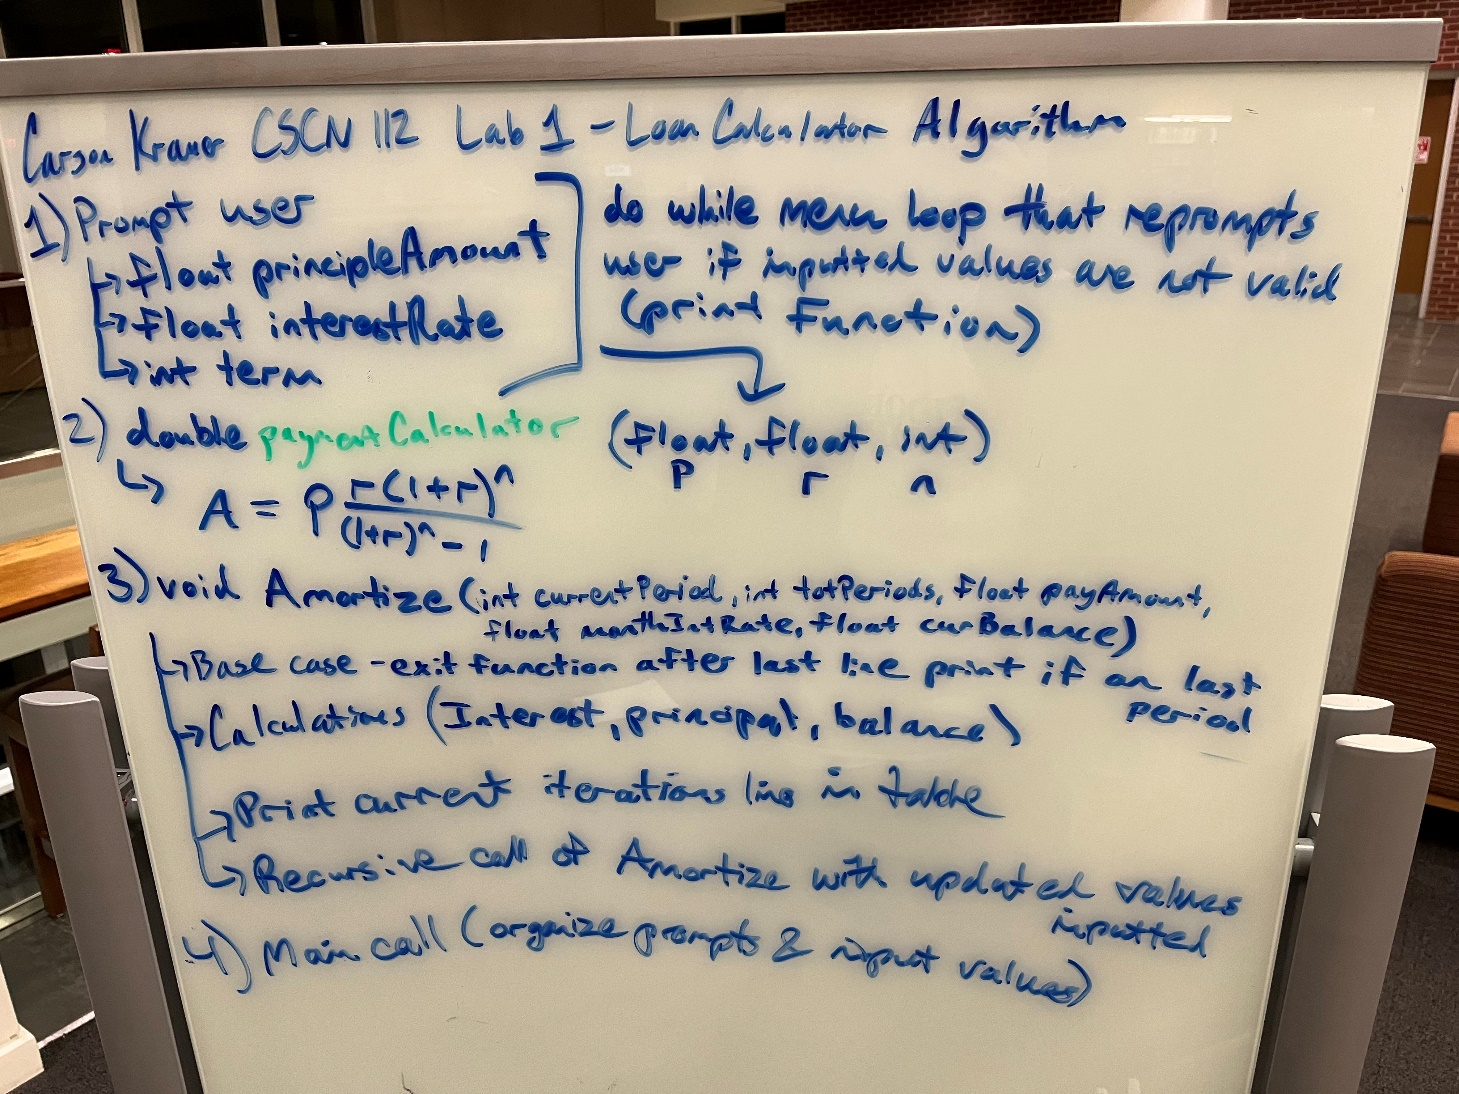 Carson Kramer CSCN 112 Lab 1 - Loan Calculator Algorithm
1) Prompt user
↳ float principleAmount
↳ float interestRate
↳ int term
do while menu loop that reprompts
user if inputted values are not valid
(print Function)
2) double paymentCalculator (float, float, int)
P r n
↳ A = P r(1+r)^n / (1+r)^n - 1
3) void Amortize (int currentPeriod, int totPeriods, float payAmount,
float monthIntRate, float curBalance)
↳ Base case - exit function after last line print if on last
period
↳ Calculations (Interest, principal, balance)
↳ Print current iterations line in table
↳ Recursive call of Amortize with updated values
inputted
4) Main call (organize prompts & input values)